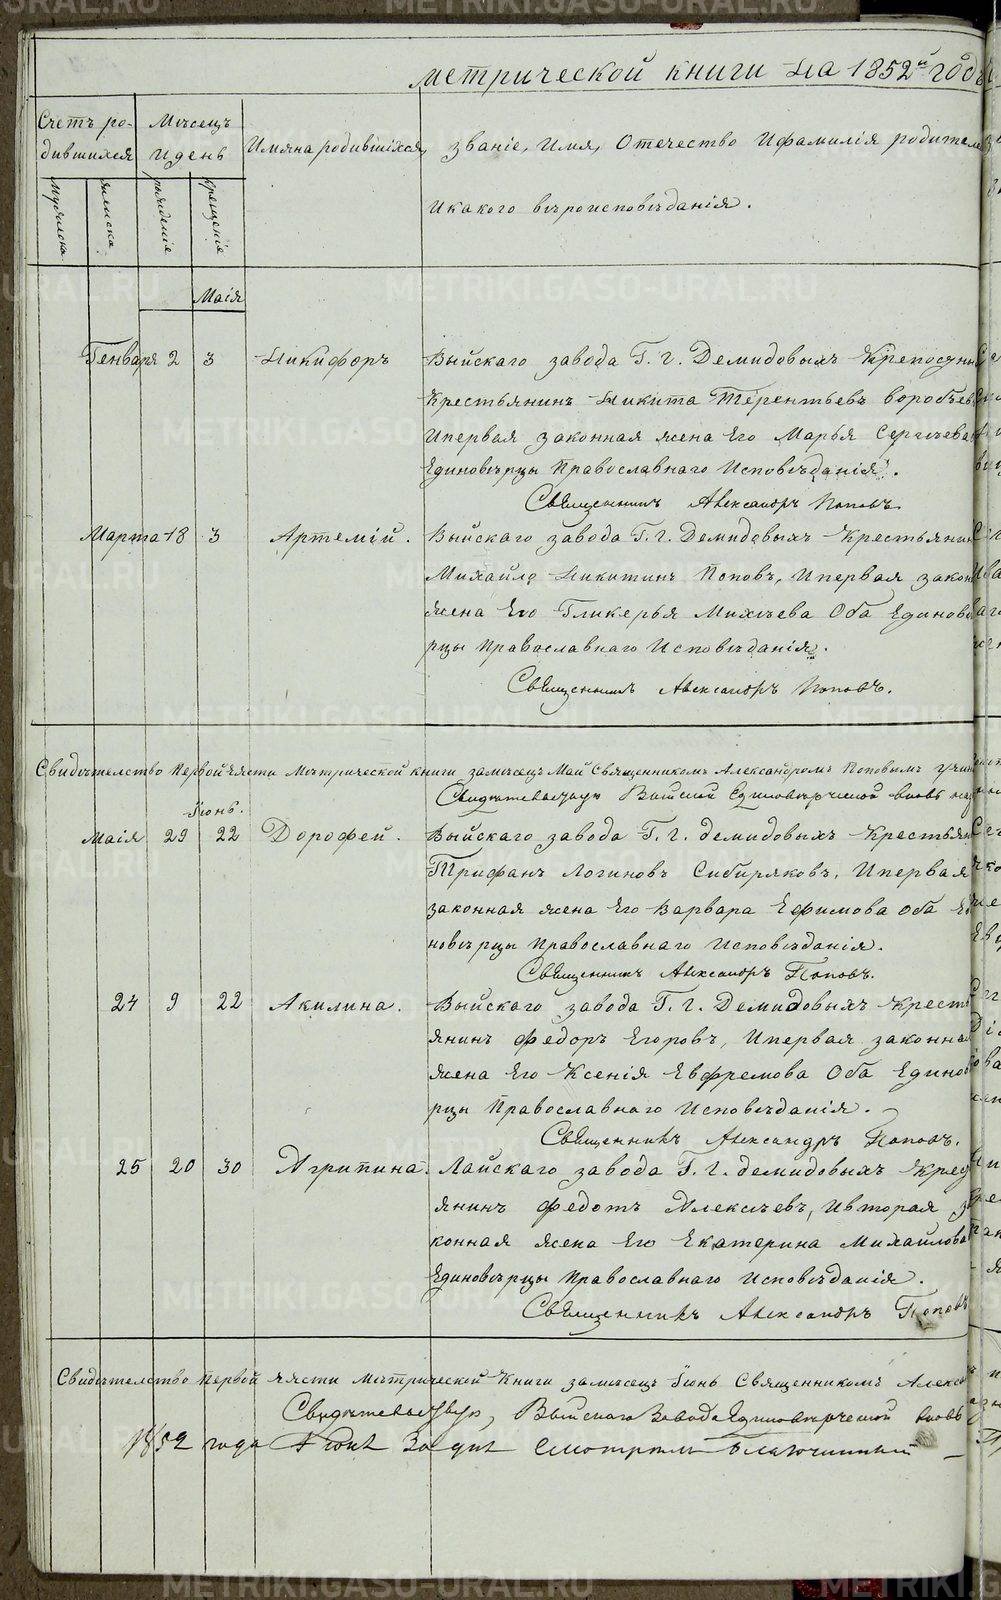 метрической книги на 1852й годъ
Счетъ ро-
дившихся
Мѣсяцъ
И день
Имяна родившихся,
званіе, Имя, Отечество Ифамилія родителей
Икакого вѣроисповѣданія.
мужеска
женска
рожденія
крещенія
Маія
Генваря 2 3 Никифоръ
Выйскаго завода Г. Г. Демидовыхъ Крепосун
Крестьянинъ Никита Терентьевъ воробьев
Ипервая законная жена Его Марья Сергѣева
Единовѣрцы Православнаго Исповѣданія.
Священникъ Александръ Поповъ
Марта 18 3 Артемій.
Выйскаго завода Г. Г. Демидовыхъ Крестьянин
Михайло Никитинъ Поповъ, Ипервая закон
жена Его Гликерья Михѣева Оба Единовѣ
рцы Православнаго Исповѣданія.
Священникъ Александръ Поповъ.
Свидѣтелство Первой части Метрической книги замѣсяцъ Май Священникомъ Александромъ Поповымъ учин
Свидѣтельствую Выйской Единовѣрческой
Іюнь.
Маія 29 22 Дорофей.
Выйскаго завода Г. Г. демидовыхъ Крестьян
Трифанъ Логиновъ Сибиряковъ, Ипервая
законная жена Его Варвара Ефимова оба Ед
новѣрцы Православнаго Исповѣданія.
Священникъ Александръ Поповъ.
24 9 22 Акилина.
Выйскаго завода Г. Г. Демидовыхъ Кресть
янинъ федоръ Егоровъ, Ипервая законна
жена Его Ксенія Евфремова Оба Единов
рцы Православнаго Исповѣданія.
Священникъ Александръ Поповъ.
25 20 30 Агрипина.
Лайскаго завода Г. Г. демидовыхъ Крес
янинъ федотъ Алексѣевъ, Ивторая за
конная жена Его Екатерина Михайлова
Единовѣрцы Православнаго Исповѣданія.
Священникъ Александръ Поповъ
Свидѣтелство Первой части Метрической Книги замѣсяцъ Іюнь Священникомъ Алекса
Свидѣтельствую, Выйскаго Завода Единовѣрческой
1852 года Смотрѣлъ Благочинный
METRIKI.GASO-URAL.RU